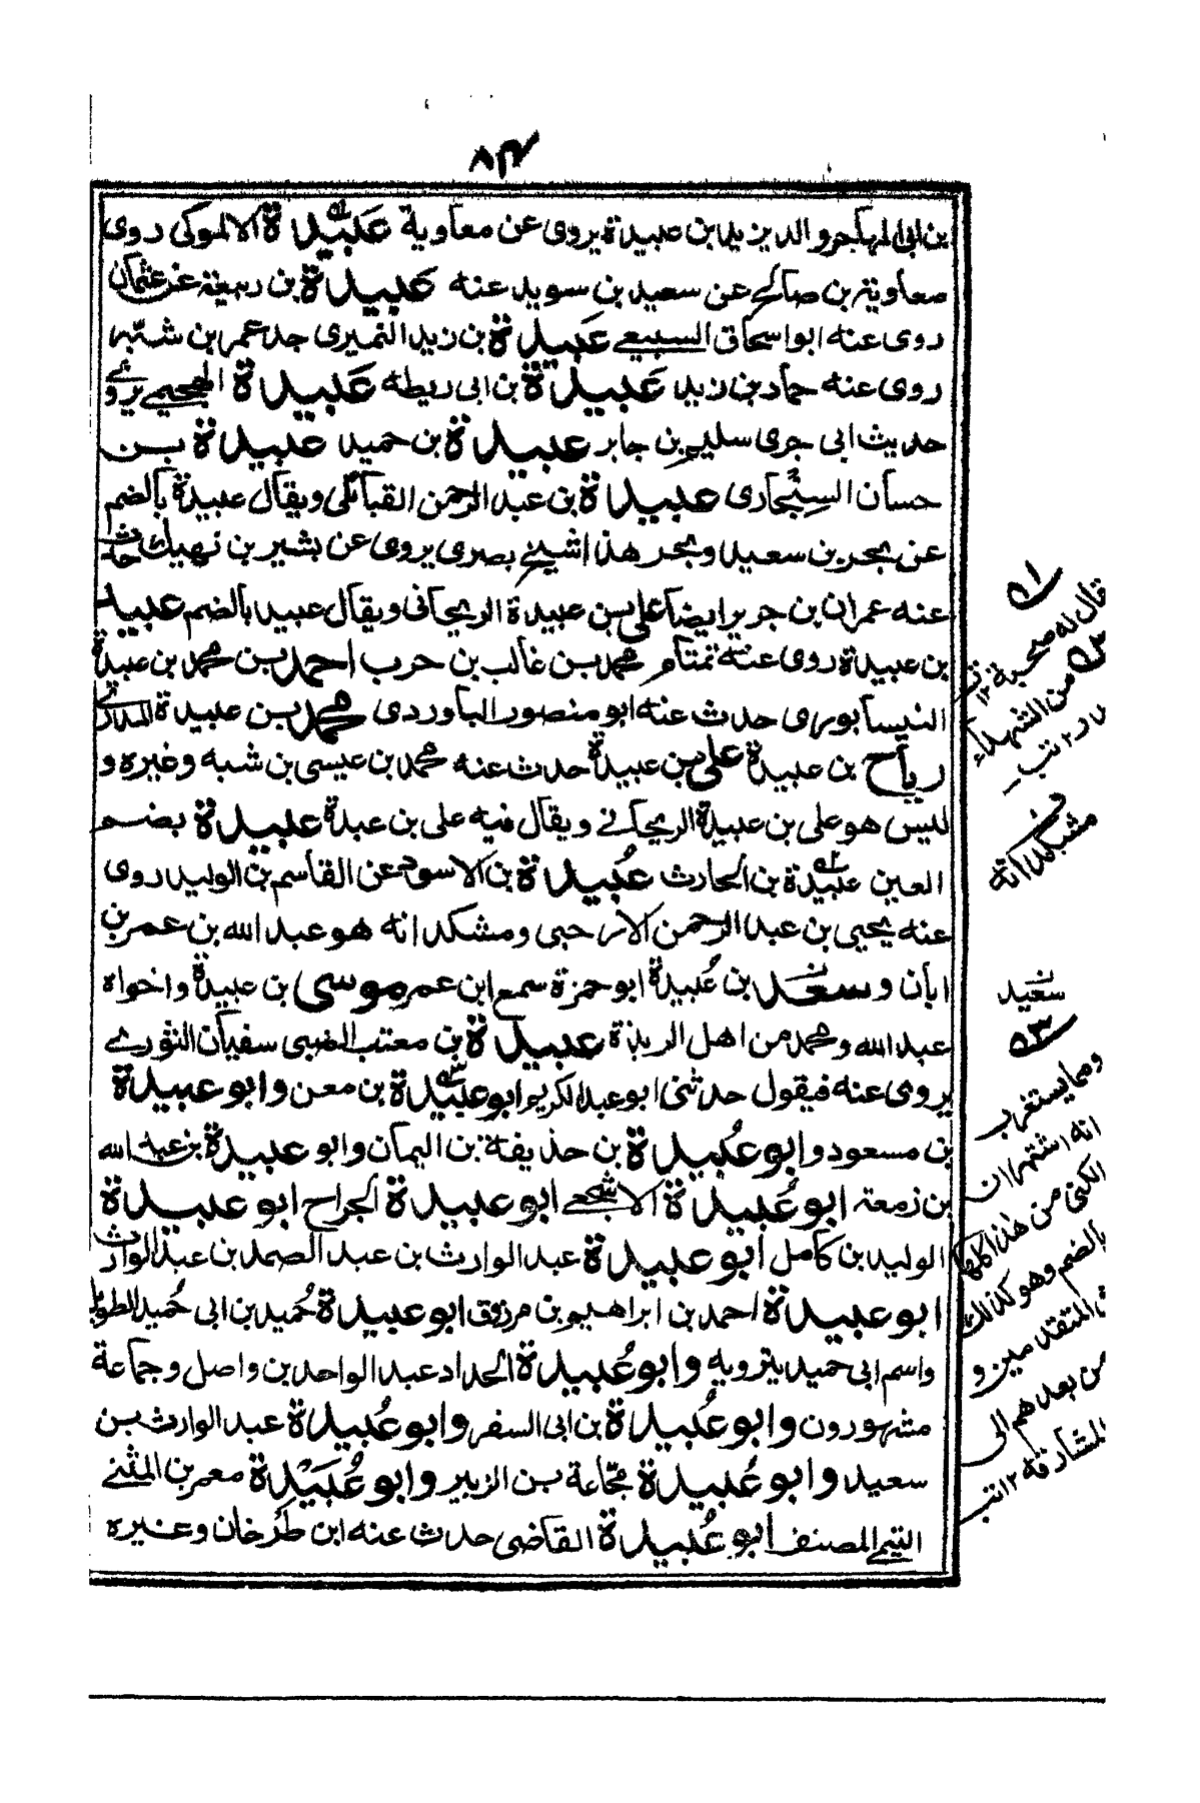 ٨٣
بن ابي المهاجر والد يزيد بن عبيدة يروى عن معاوية عَبيدة الاملوكى روى
معاوية بن صالح عن سعيد بن سويد عنه عَبيدة بن ربيعة عن عثمان
روى عنه ابو اسحاق السبيعے عَبيدة بن زيد النميرى جد عمر بن شبّه
روى عنه حماد بن زيد عَبيدة بن ابى ريطه عَبيدة الهجيمے يروے
حديث ابى جرى سليم بن جابر عبيدة بن حميد عبيدة بن
حسان السِنْجارى عبيدة بن عبد الرحمن القبائلى ويقال عبيدة بالضم
عن بحر بن سعيد وبحر هذا شيخ بصرى يروى عن بشير بن نهيك حدث
عنه عمران بن جرير ايضا على بن عبيدة الريحانى ويقال عبيد بالضم عبيد
بن عبيدة روى عنه تمتام محمد بن غالب بن حرب احمد بن محمد بن عبيدة
النيسابورى حدث عنه ابو منصور الباوردى محمد بن عبيدة
رياح بن عبيدة على بن عبيدة حدث عنه محمد بن عيسى بن شبه وغيره و
ليس هو على بن عبيدة الريحانے ويقال فيه على بن عبدة عبيدة بضم
العين عبيدة بن الحارث عُبيدة بن الاسود عن القاسم بن الوليد روى
عنه يحيى بن عبد الرحمن الارحبى ومشكدانه هو عبد الله بن عمر بن
ابان وسعد بن عُبيدة ابو حمزة سمع ابن عمر موسى بن عبيدة واخواه
عبد الله ومحمد من اهل الربذة عبيدة بن معتب الضبى سفيان الثورے
يروى عنه فيقول حدثنى ابو عبد الكريم ابو عبيدة بن معن وابو عبيدة
بن مسعود وابو عُبيدة بن حذيفة بن اليمان وابو عبيدة بن عبد الله
بن زمعة ابو عُبيدة الاشجعے ابو عبيدة الجراح ابو عبيدة
الوليد بن كامل ابو عبيدة عبد الوارث بن عبد الصمد بن عبد الوارث
ابو عبيدة احمد بن ابراهيم بن مرزوق ابو عبيدة حُميد بن ابى حُميد الطويل
واسم ابى حميد يترويه وابو عُبيدة الحداد عبد الواحد بن واصل وجماعة
مشهورون وابو عُبيدة بن ابى السفر وابو عُبيدة عبد الوارث بن
سعيد وابو عُبيدة مجّاعة بن الزبير وابو عُبَيْدة معمر بن المثنے
التيمے المصنف ابو عُبيدة القاضى حدث عنه ابن طرخان وغيره
٥١
قال له صحبة ١٢
٥٢
من الشهداء
مشكدانه
سعيد
٥٣
ومما يستغرب
انه اشتهر ان
الكنى من هذا كلها
بالضم وهو كذلك
المتقدمين و
من بعدهم الى
المشارقه ١٢